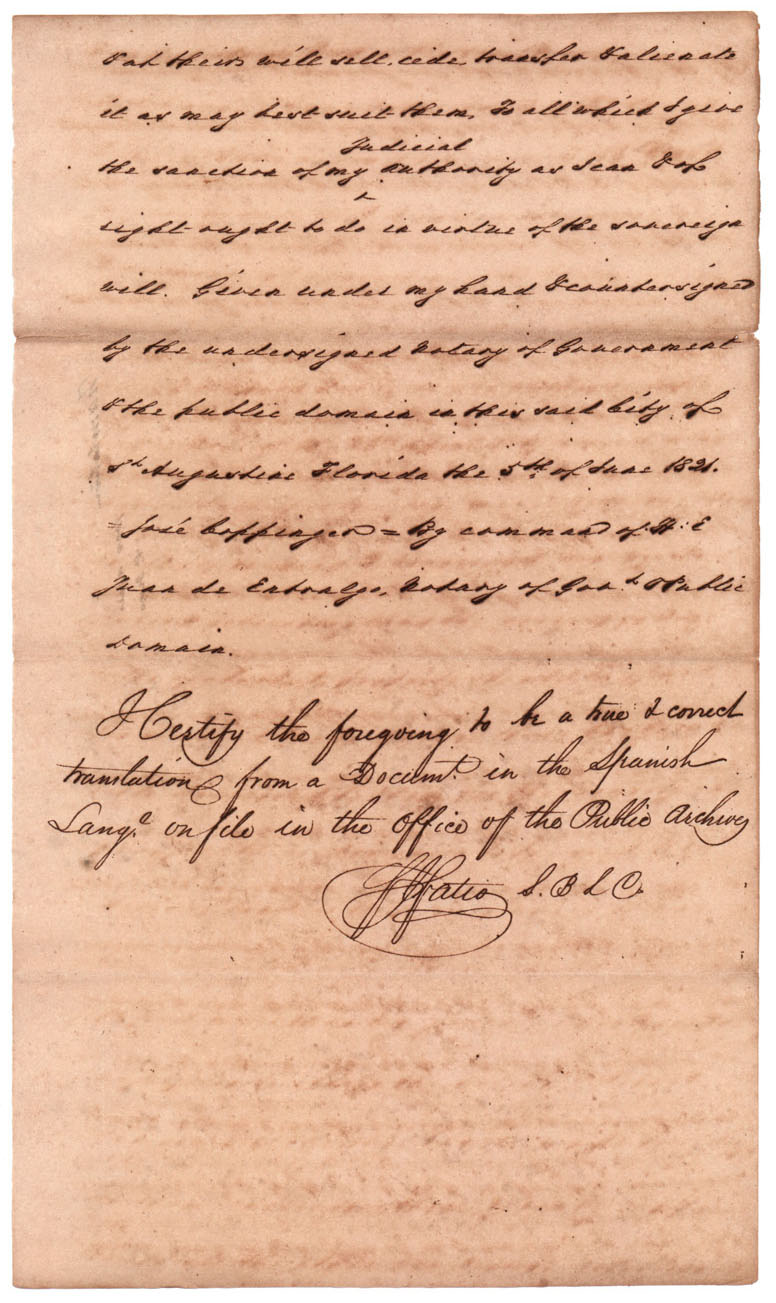 & at their will sell, cede, transfer & alienate
it as may best suit them, To all which I give
Judicial
the sanction of my authority as I can & of
^
right ought to do in virtue of the sovereign
will. Given under my hand & countersigned
by the undersigned Notary of Government
& the public domain in this said City of
St. Augustine Florida the 5th. of June 1821.
= José Coppinger = By command of H. E
Juan de Entralgo, Notary of Govt. & Public
Domain.
I Certify the foregoing to be a true & correct
translation from a Documt. in the Spanish
Lange. on file in the Office of the Public Archives
F J Fatio S. B L C.